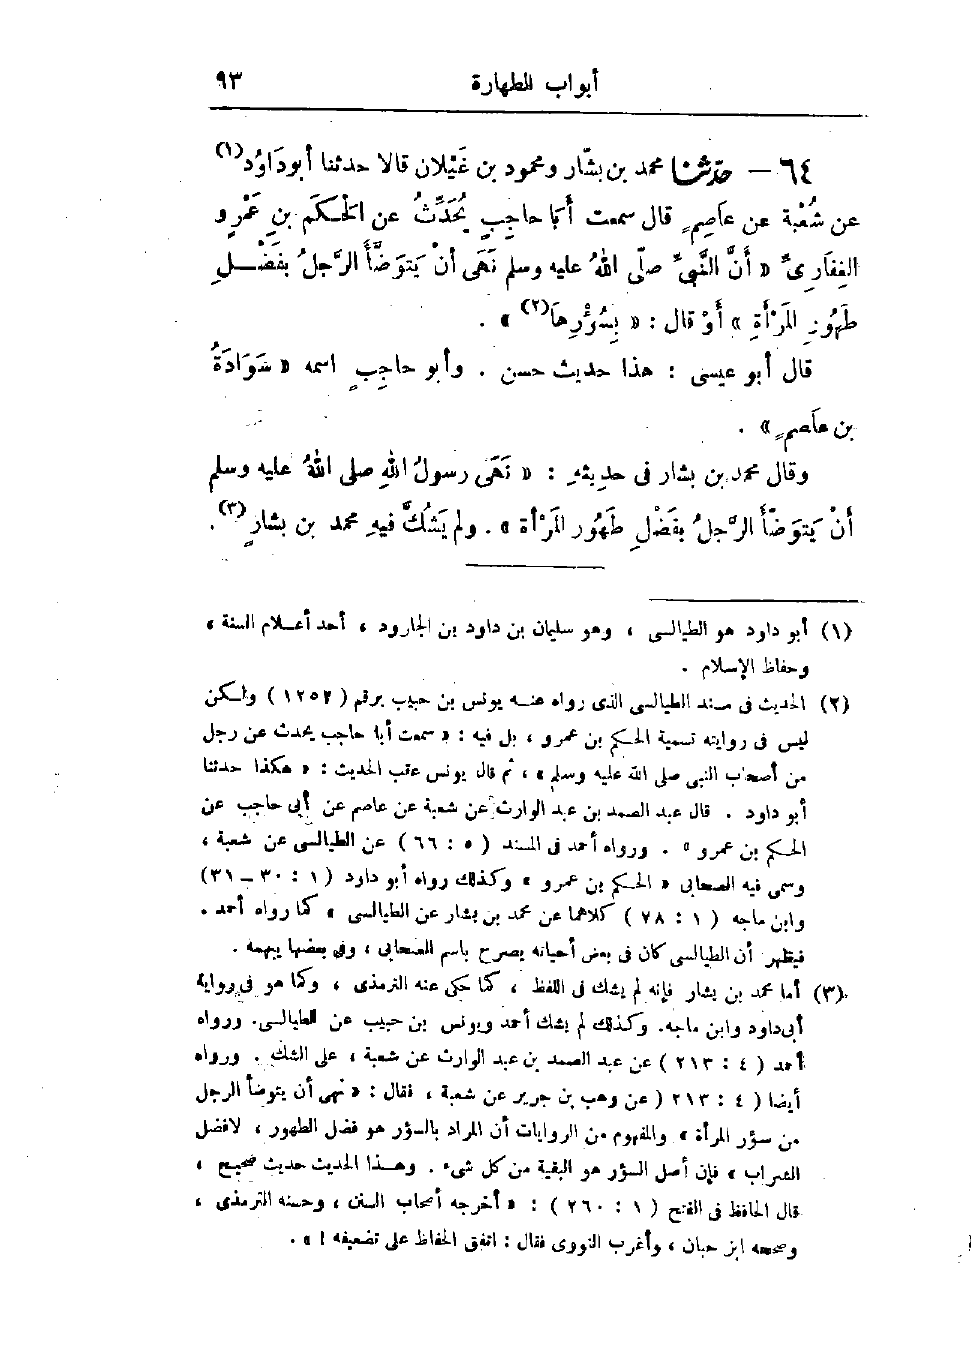 أبواب الطهارة ٩٣
٦٤ — حَدَّثَنَا محمد بن بشَّار ومحمود بن غَيْلان قالا حدثنا أبو دَاوُد (١)
عن شُعْبة عن عاَصِمٍ قال سمعت أَبَا حاجِبٍ يُحَدِّثُ عن الْحَكَمِ بنِ عَمْرٍو
الغِفَارِىِّ « أَنَّ النَّبِىَّ صلَّى اللهُ عليه وسلم نَهَى أنْ يَتوَضَّأَ الرَّجلُ بفَضْلِ
طَهُورِ الْمَرْأَةِ » أَوْ قال : « بِسُؤْرِهاَ (٢) » .
قال أبو عيسى : هذا حديث حسن . وأبو حاجِبٍ اسمه « سَوَادَةُ
بن عاَصمٍ » .
وقال محمد بن بشار فى حديثهِ : « نَهَى رسولُ اللهِ صلى اللهُ عليه وسلم
أَنْ يَتوَضّأَ الرَّجلُ بفَضْلِ طَهُور الْمَرْأة » . ولم يَشُكَّ فيهِ محمد بن بشارٍ (٣) .
(١) أبو داود هو الطيالسى ، وهو سليمان بن داود بن الجارود ، أحد أعلام السنة ،
وحفاظ الإسلام .
(٢) الحديث فى مسند الطيالسى الذى رواه عنه يونس بن حبيب برقم (١٢٥٢) ولكن
ليس فى روايته تسمية الحكم بن عمرو ، بل فيه : « سمعت أبا حاجب يحدث عن رجل
من أصحاب النبى صلى الله عليه وسلم » ، ثم قال يونس عقب الحديث : « هكذا حدثنا
أبو داود . قال عبد الصمد بن عبد الوارث عن شعبة عن عاصم عن أبى حاجب عن
الحكم بن عمرو » . ورواه أحمد فى المسند (٥ : ٦٦) عن الطيالسى عن شعبة ،
وسمى فيه الصحابى « الحكم بن عمرو » وكذلك رواه أبو داود (١ : ٣٠ – ٣١)
وابن ماجه (١ : ٧٨) كلاهما عن محمد بن بشار عن الطيالسى ، كما رواه أحمد .
فيظهر أن الطيالسى كان فى بعض أحيانه يصرح باسم الصحابى ، وفى بعضها يبهمه .
(٣) أما محمد بن بشار فإنه لم يشك فى اللفظ ، كما حكى عنه الترمذى ، وكما هو فى رواية
أبى داود وابن ماجه . وكذلك لم يشك أحمد ويونس بن حبيب عن الطيالسى . ورواه
أحمد (٤ : ٢١٣) عن عبد الصمد بن عبد الوارث عن شعبة ، على الشك . ورواه
أيضا (٤ : ٢١٣) عن وهب بن جرير عن شعبة ، فقال : « نهى أن يتوضأ الرجل
من سؤر المرأة » والمفهوم من الروايات أن المراد بالسؤر هو فضل الطهور ، لافضل
الشراب ، فإن أصل السؤر هو البقية من كل شىء . وهذا الحديث حديث صحيح ،
قال الحافظ فى الفتح (١ : ٢٦٠) : « أخرجه أصحاب السنن ، وحسنه الترمذى ،
وصححه ابن حبان ، وأغرب النووى فقال : اتفق الحفاظ على تضعيفه ! » .